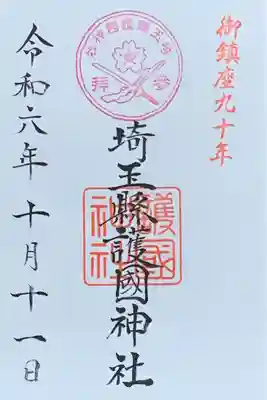 御鎮座九十年
埼玉縣護國神社
護國神社
令和六年十月十一日